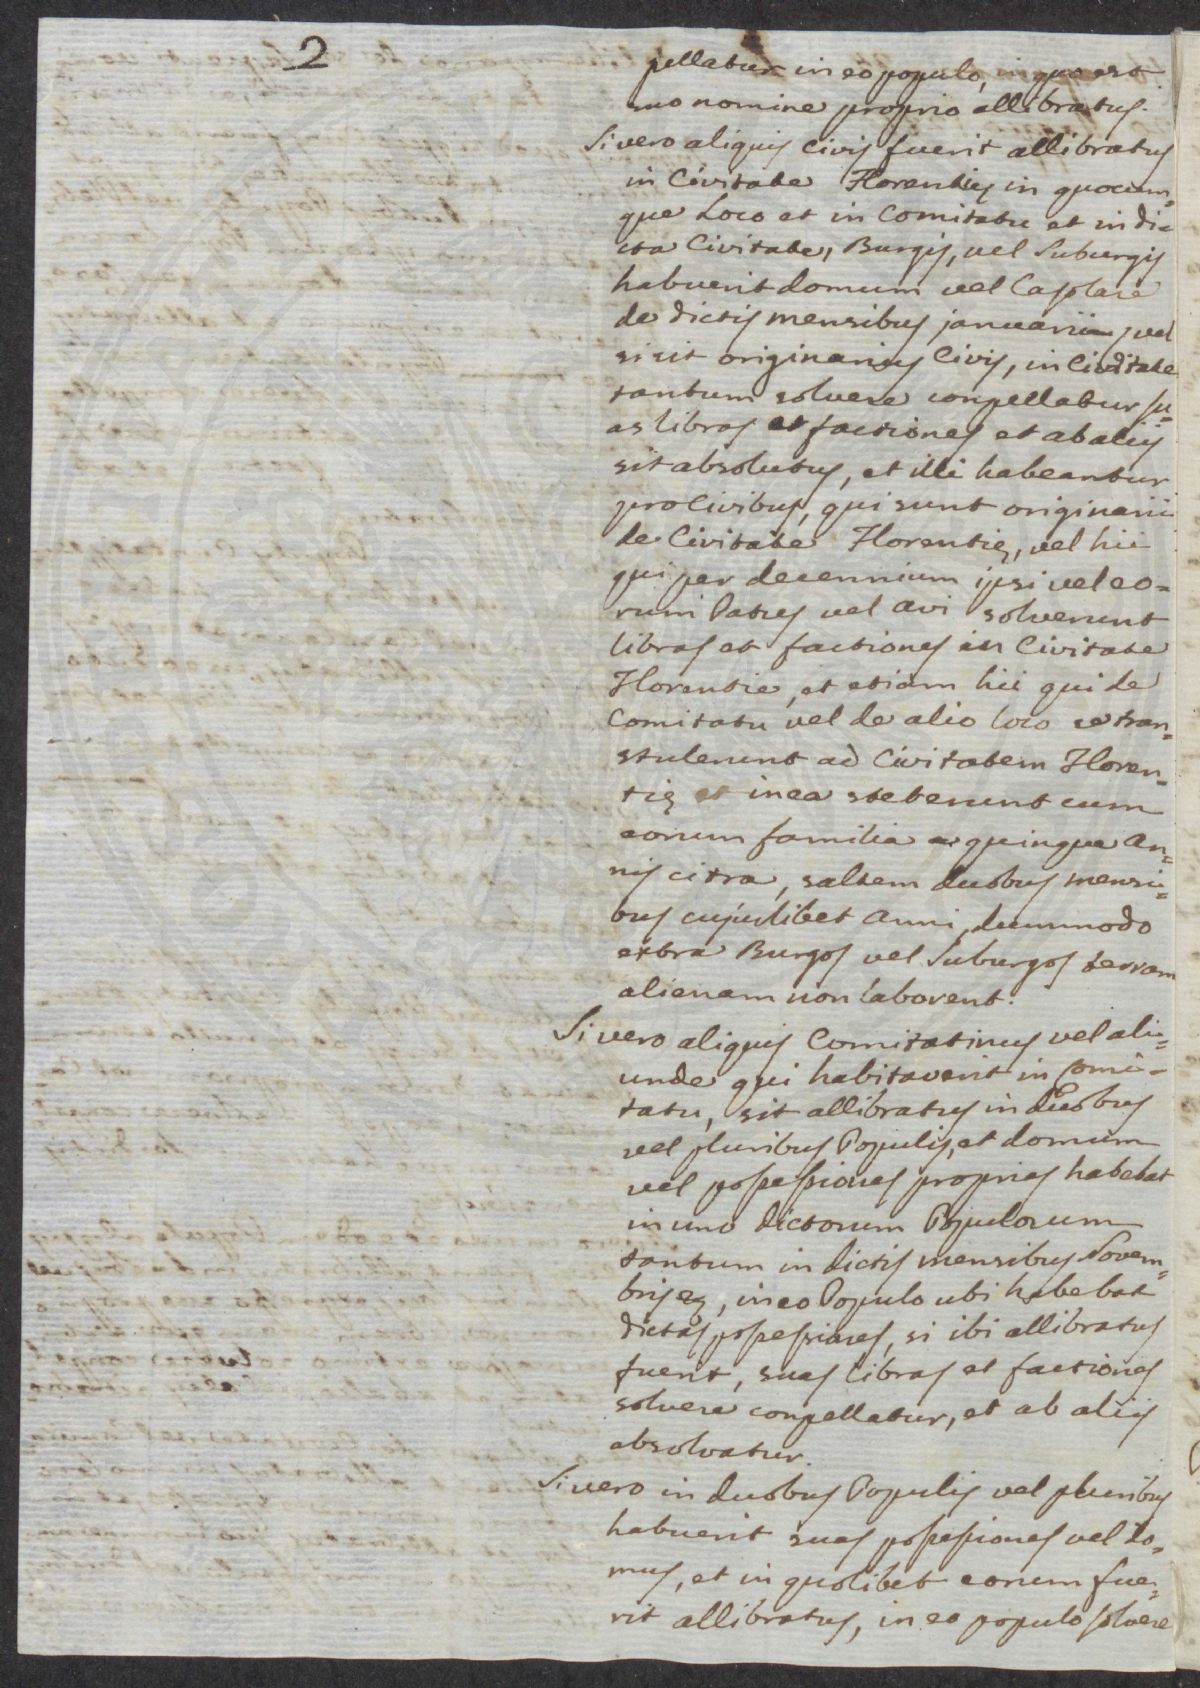 2
pellatur in eo populo, in quo est
suo nomine proprio allibratus.
Si vero aliquis Civis fuerit allibratus
in Civitate Florentię in quocum=
que Loco et in Comitatu et in di=
cta Civitate, Burgis, vel Suburgis
habuerit domum vel Casolare
de dictis mensibus januarii, vel
si sit originarius Civis, in Civitate
tantum solvere conpellatur su=
as libras et factiones et ab aliis
sit absolutus, et illi habeantur
pro Civibus, qui sunt originarii
de Civitate Florentię, vel hii
qui per decennium ipsi vel eo=
rum Patres vel Avi solverunt
libras et factiones in Civitate
Florentie, et etiam hii qui de
Comitatu vel de alio loco se tran=
stulerunt ad Civitatem Floren=
tię et in ea steterunt cum
eorum familia a quinque An=
nis citra, saltem duobus mensi=
bus cujuslibet Anni, dummodo
extra Burgos vel Suburgos terram
alienam non laborent.
Si vero aliquis Comitatinus vel ali=
unde qui habitaverit in Comi=
tatu, sit allibratus in duobus
vel pluribus Populis, et domum
vel possessiones proprias habebat
in uno dictorum Populorum
tantum in dictis mensibus Novem=
bris, in eo Populo ubi habebat
dictas possessiones, si ibi allibratus
fuerit, suas libras et factiones
solvere conpellatur, et ab aliis
absolvatur.
Si vero in duobus Populis vel pluribus
habuerit suas possessiones vel do=
mus, et in quolibet eorum fue=
rit allibratus, in eo populo solvere